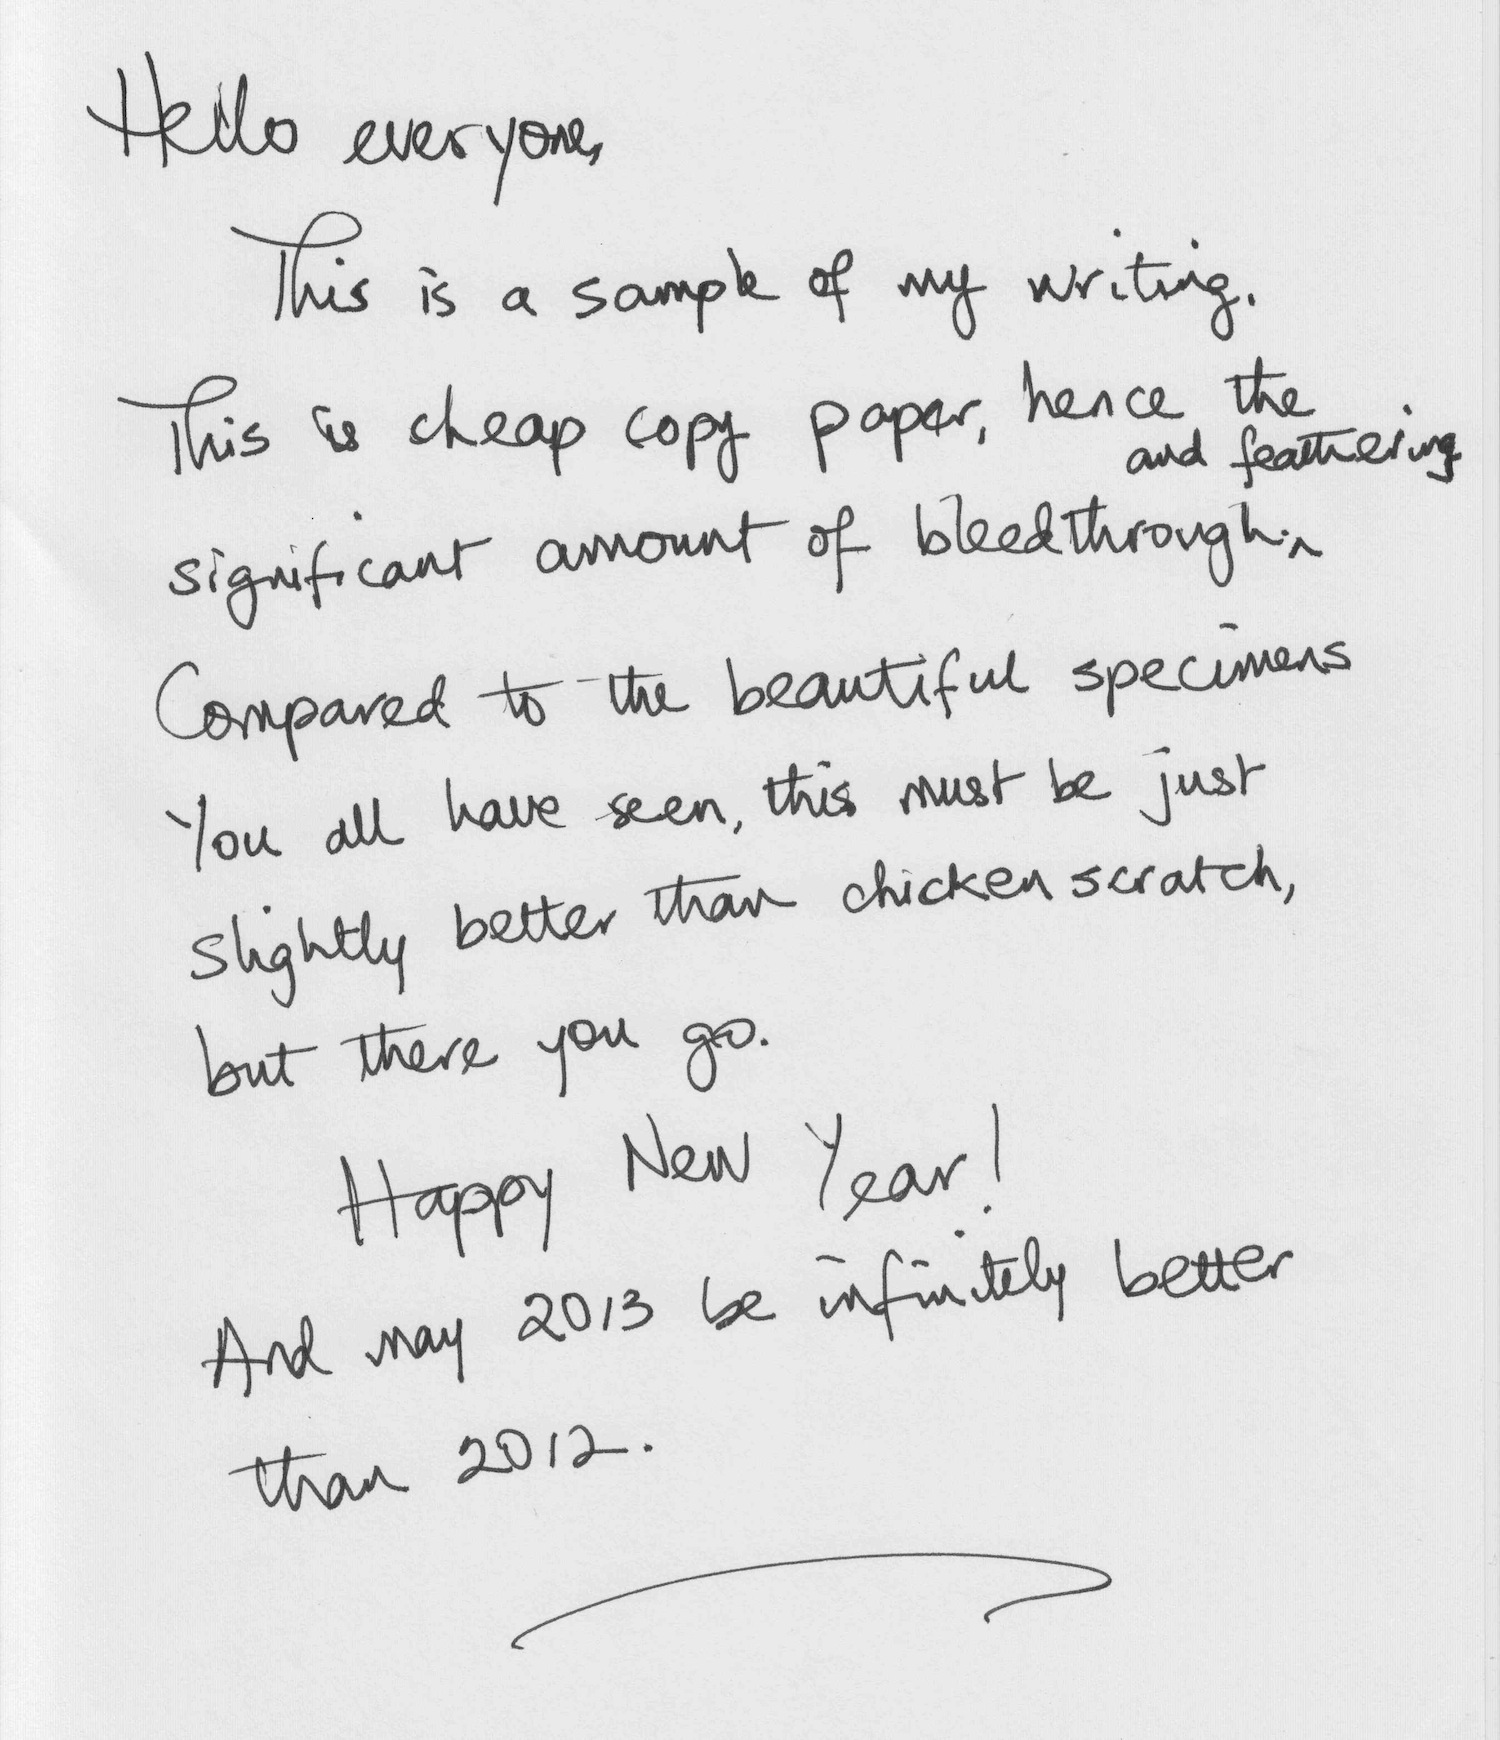 Hello everyone,
This is a sample of my writing.
This is cheap copy paper, hence the
and feathering
significant amount of bleedthrough.
Compared to the beautiful specimens
You all have seen, this must be just
slightly better than chicken scratch,
but there you go.
Happy New Year!
And may 2013 be infinitely better
than 2012.